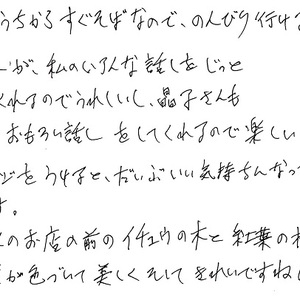 うちからすぐそばなので、のんびり行け
が、私のいろんな話しをじっと
くれるのでうれしいし、晶子さんも
おもろい話しをしてくれるので楽しい
ジをうけると、だいぶいい気持ちんなっ
す。
のお店の前のイチョウの木と紅葉の
が色づいて美しくそしてきれいですね